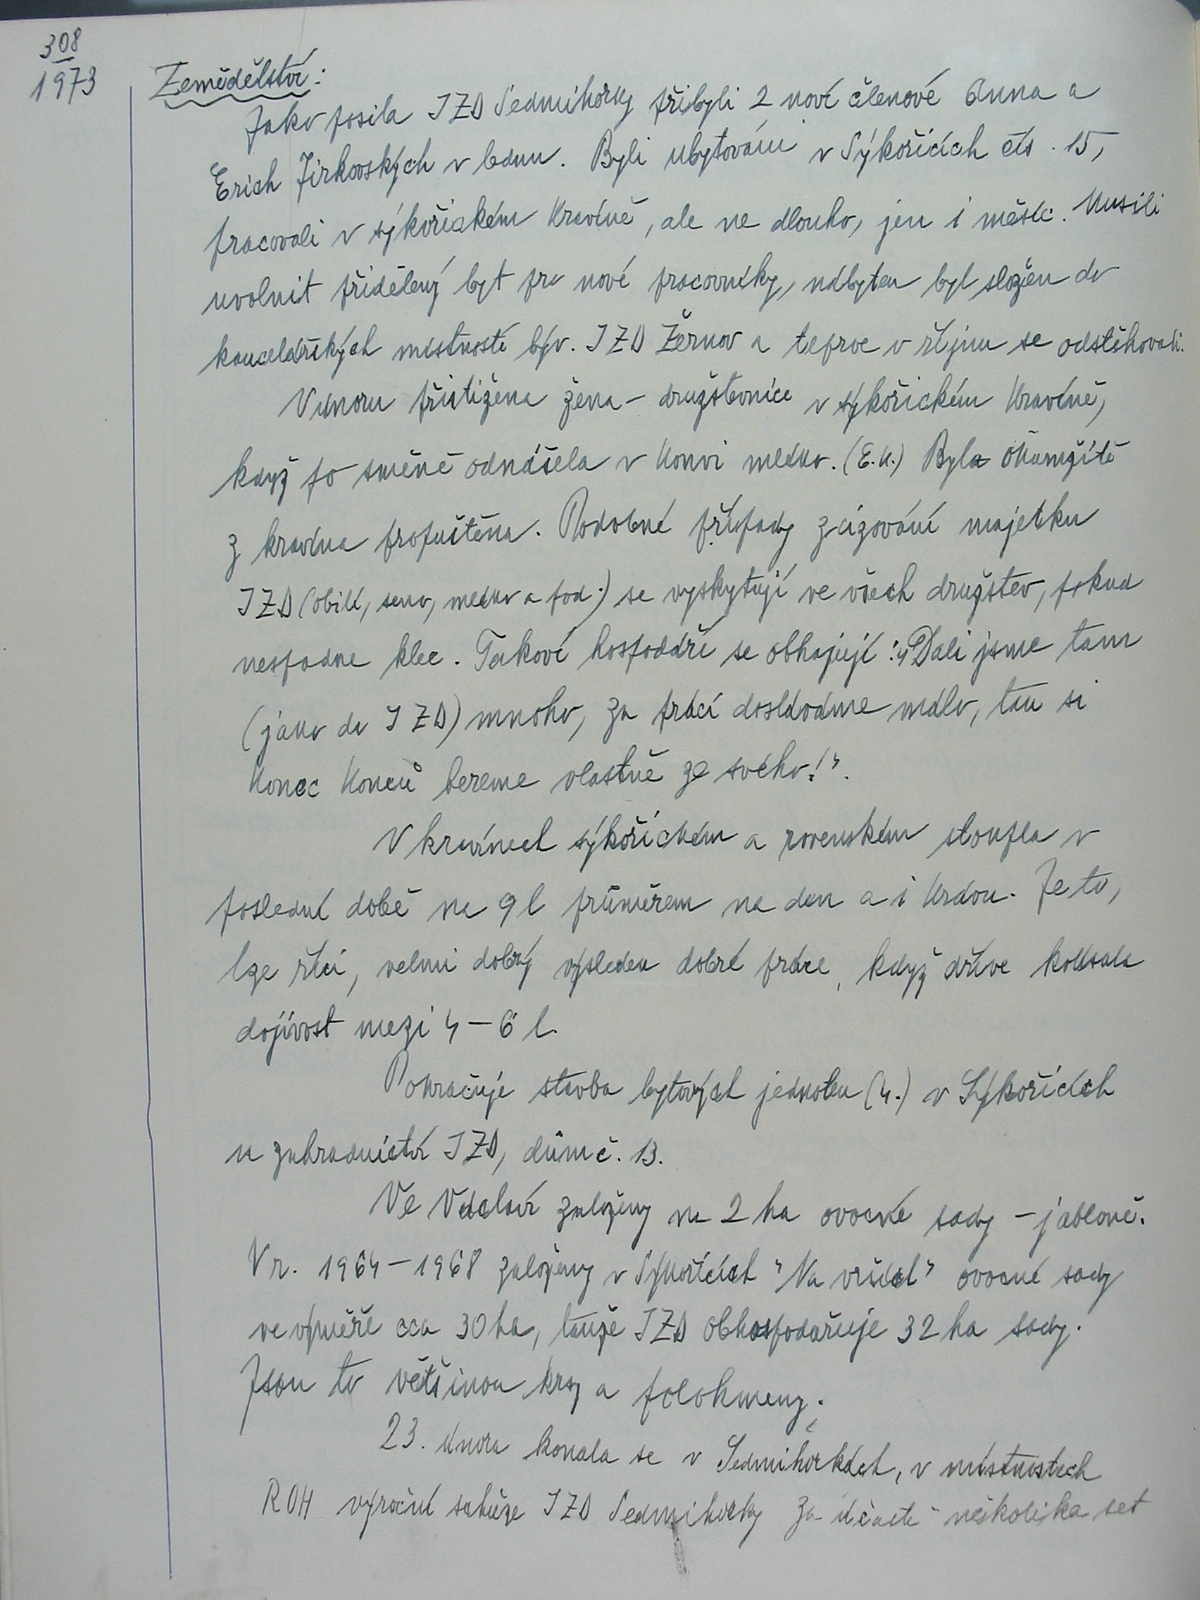 308
1973
Zemědělství:
Jako posila JZD Sedmihorky přibyli 2 noví členové Anna a
Erich Jirkovských v lednu. Byli ubytováni v Sýkořicích čís. 15,
pracovali v sýkořickém kravíně, ale ne dlouho, jen 1 měsíc. Musili
uvolnit přidělený byt pro nové pracovníky, nábytek byl složen do
kancelářských místností býv. JZD Žernov a teprve v říjnu se odstěhovali.
V únoru přistižena žena - družstevnice v sýkořickém kravíně,
když po směně odnášela v konvi mléko. (E.K.) Byla okamžitě
z kravína propuštěna. Podobné případy zcizování majetku
JZD (obilí, seno, mléko a pod.) se vyskytují ve všech družstev, pokud
nespadne klec. Takoví hospodáři se obhajují: „Dali jsme tam
(jako do JZD) mnoho, za práci dostáváme málo, tak si
konec konců bereme vlastně ze svého!".
V kravínech sýkořickém a rovenském stoupla v
poslední době na 9 l průměrem na den a 1 krávu. Je to,
lze říci, velmi dobrý výsledek dobré práce, když dříve kolísala
dojivost mezi 4 - 6 l.
Pokračuje stavba bytových jednotek (4.) v Sýkořicích
u zahradnictví JZD, dům č. 13.
Ve Václaví založeny na 2 ha ovocné sady - jabloně.
V r. 1964 - 1968 založeny v Sýkořicích "Na vrších" ovocné sady
ve výměře cca 30 ha, takže JZD obhospodařuje 32 ha sady.
Jsou to většinou krsy a polokmeny.
23. února konala se v Sedmihorkách, v místnostech
ROH výroční schůze JZD Sedmihorky za účasti několika set